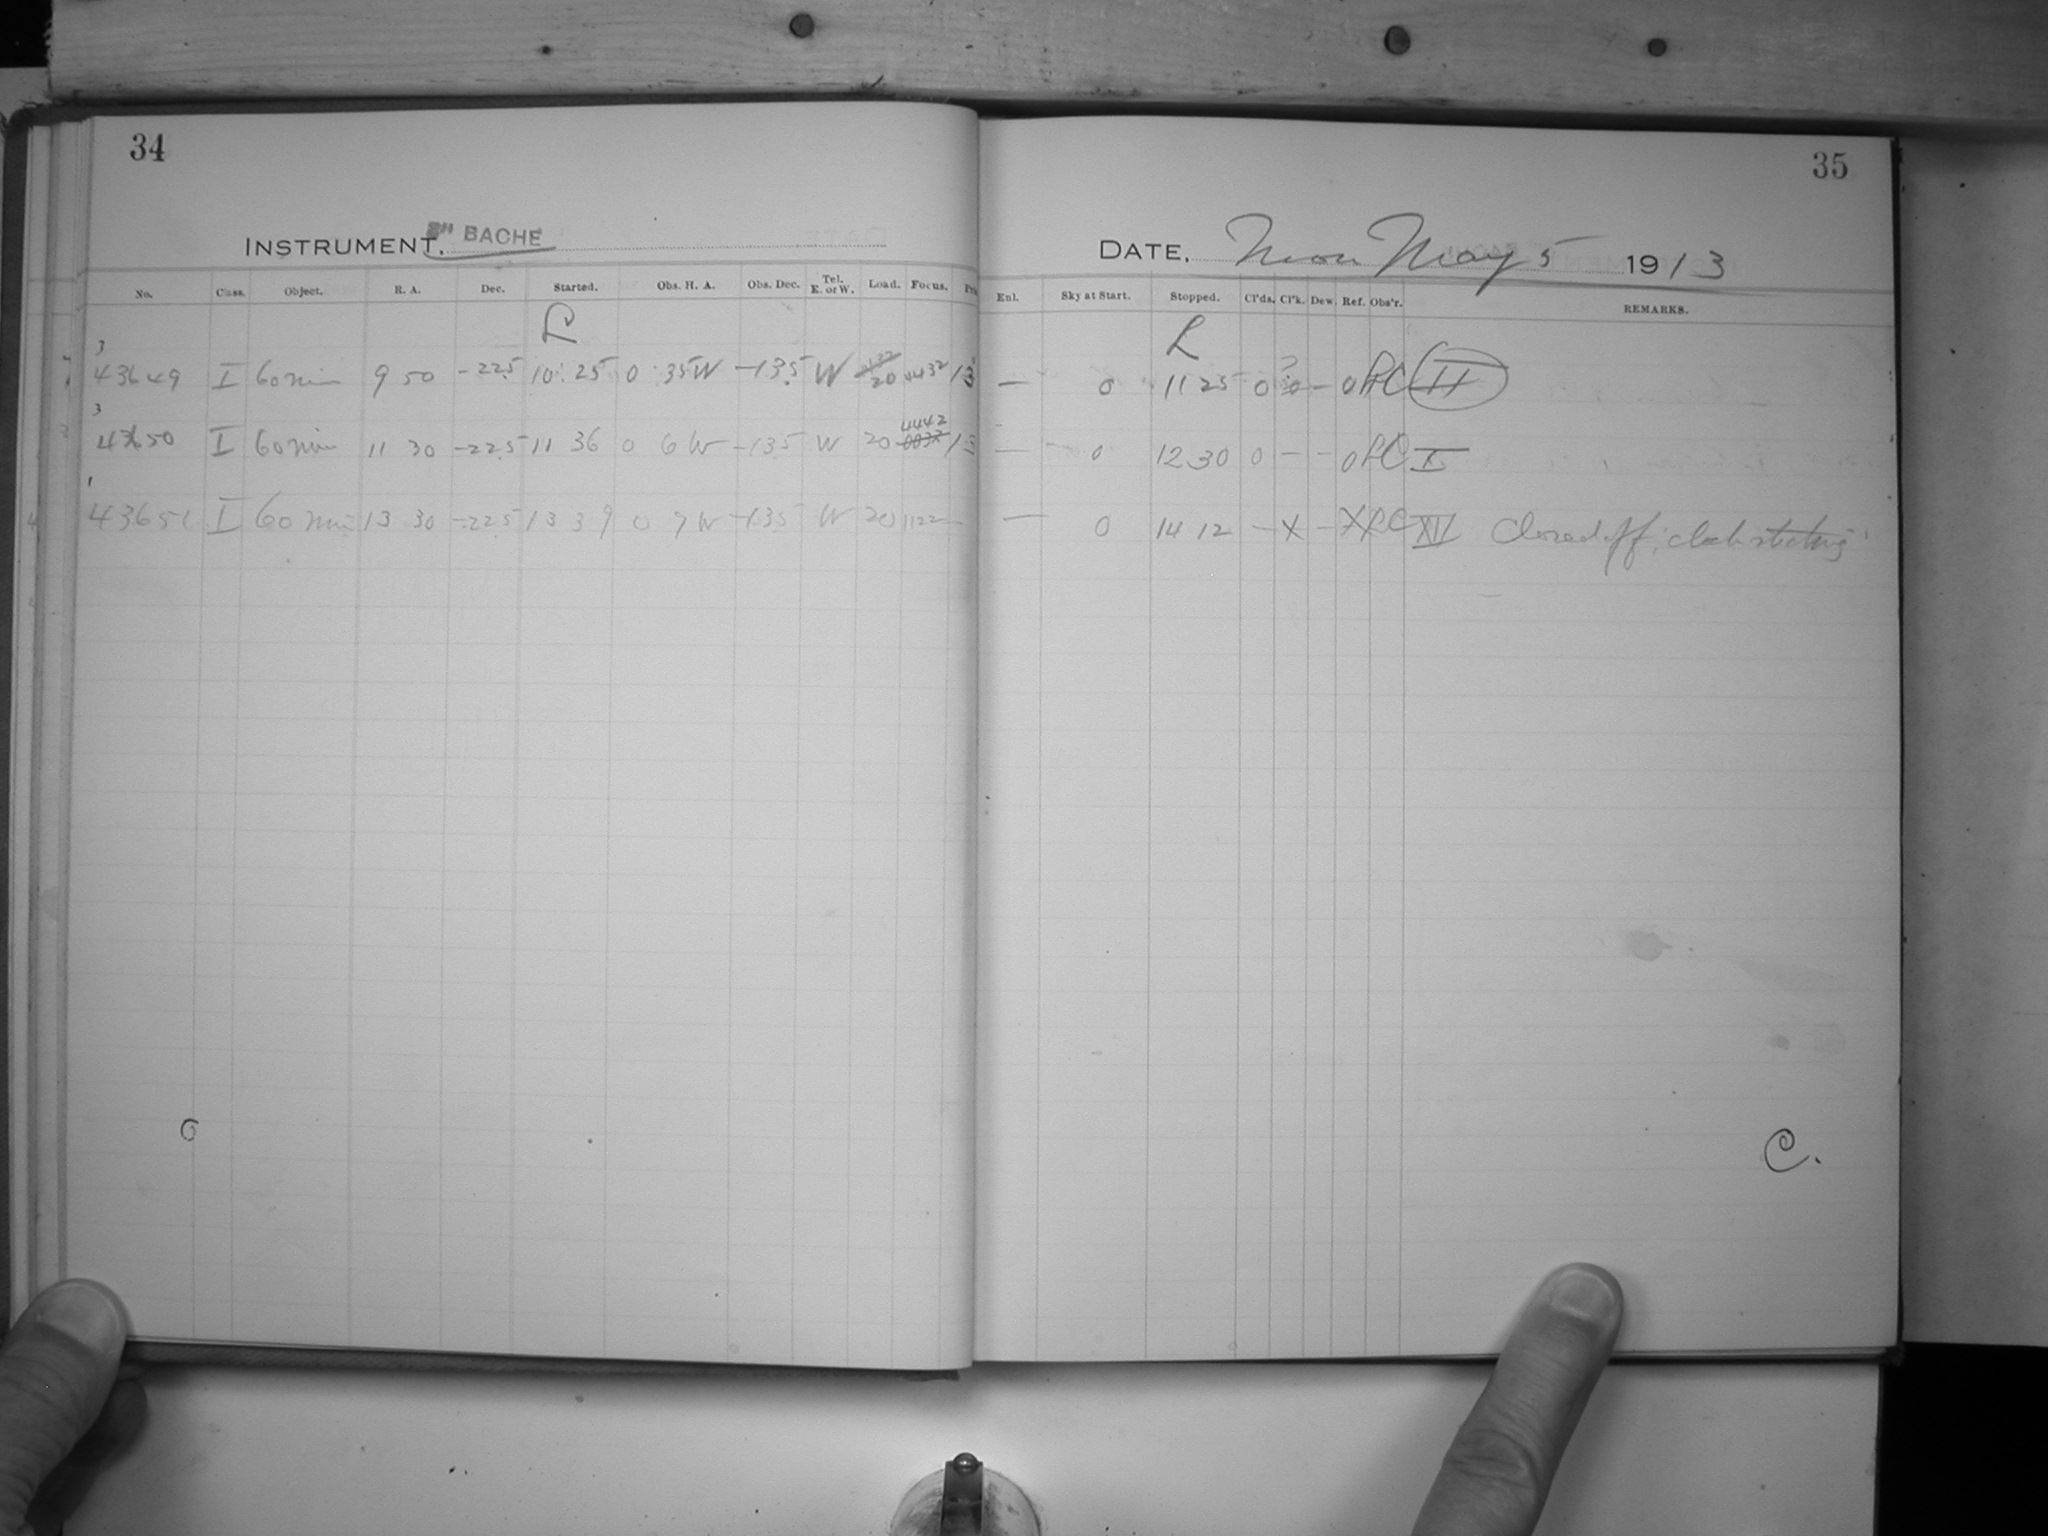 34
INSTRUMENT. 8" BACHE
No. Class. Object. R. A. Dec. Started. Obs. H. A. Obs. Dec. Tel. E. or W. Load. Focus.
3
43649 I 60 min 9 50 -22.5 10 25 0 35 W -13.5 W 20 4432 13
3
43650 I 60 min 11 30 -22.5 11 36 0 6 W -13.5 W 20 4442 13
1
43651 I 60 min 13 30 -22.5 13 39 0 9 W -13.5 W 20 1122
35
DATE. Mon May 5 1913
Enl. Sky at Start. Stopped. Cl'ds. Cl'k. Dew. Ref. Obs'r. REMARKS.
— 0 11 25 0 0 — 0 II
— 0 12 30 0 — — 0 I
— 0 14 12 — X — X XIV Closed off, clock sticking
C.